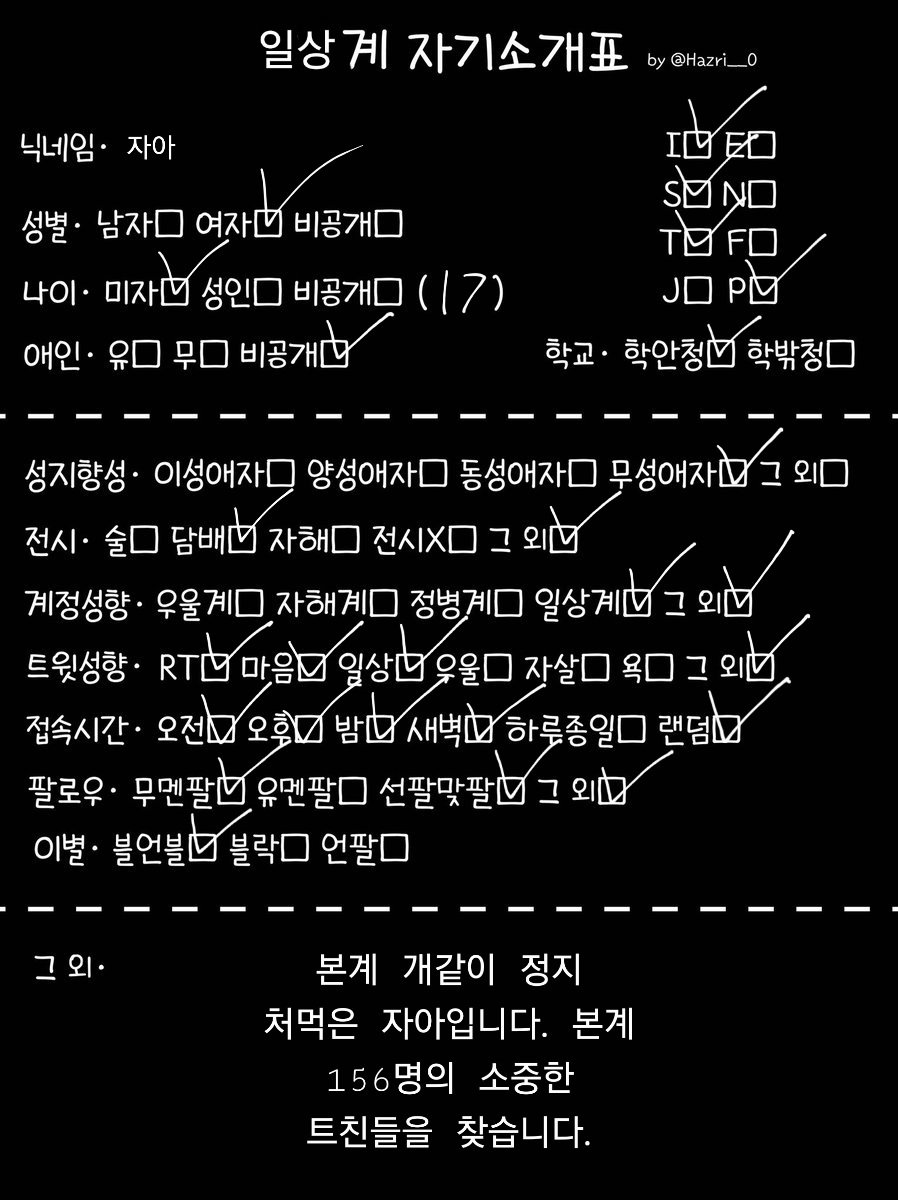 일상계 자기소개표 by @Hazri__0
닉네임· 자아
I☑ E☐
S☑ N☐
성별· 남자☐ 여자☑ 비공개☐
T☑ F☐
나이· 미자☑ 성인☐ 비공개☐ (17)
J☐ P☑
애인· 유☐ 무☐ 비공개☑
학교· 학안청☑ 학밖청☐
성지향성· 이성애자☐ 양성애자☐ 동성애자☐ 무성애자☑ 그 외☐
전시· 술☐ 담배☑ 자해☐ 전시X☐ 그 외☑
계정성향· 우울계☐ 자해계☐ 정병계☐ 일상계☑ 그 외☑
트윗성향· RT☑ 마음☑ 일상☑ 우울☐ 자살☐ 욕☐ 그 외☑
접속시간· 오전☑ 오후☑ 밤☑ 새벽☑ 하루종일☐ 랜덤☑
팔로우· 무멘팔☑ 유멘팔☐ 선팔맞팔☑ 그 외☑
이별· 블언블☑ 블락☐ 언팔☐
그 외·
본계 개같이 정지
처먹은 자아입니다. 본계
156명의 소중한
트친들을 찾습니다.